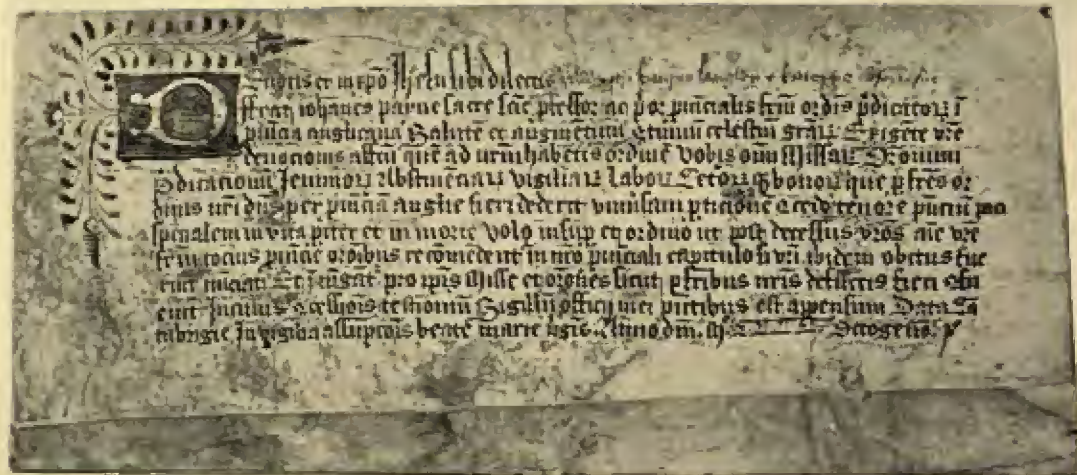 Deuotis et in xpō Jhesu sibi dilectis
ffrater iohānes payne sacre scīe pfessor ac pōr puīncialis frm̄ ordīs pdicatoꝝ ī
puīcia anglicana Salutē et augmētum cōtinuū celestiū grāꝝ Exigēte vrē
deuocionis affcū quē ad nrm̄ habetis ordinē Vobis oīm Missaꝝ Orōnum
Pdicacionū Jeiunioꝝ Abstinēciaꝝ Vigiliaꝝ Laboꝝ Cetoꝝqꝫ bonoꝝ que p frēs or
dinis nrī dn̄s per puīciā anglie fieri dederit vniūsam pticionē cōcedo tenore pn̄ciū
spirīalem in vita pīter et in morte Volo insup et ordino ut post decessus vrōs aīe vrē
frm̄ tocius puīcie orōibus recōmēdent̄ in nrō puīciali capitulo si vrī ibidem obitus fue
rint nūciati Et iniūgāt̄ pro ip̄is misse et orōnes sicut p frībus nrīs defūctis fieri cōsu
euit In cuius cōcessiōis testioniū Sigillū officij mei pn̄tibus est appensum Data Cā
tabrigie In vigilia assūptōis beate marie v̄gīs Anno dm̄ Mº octogesiº